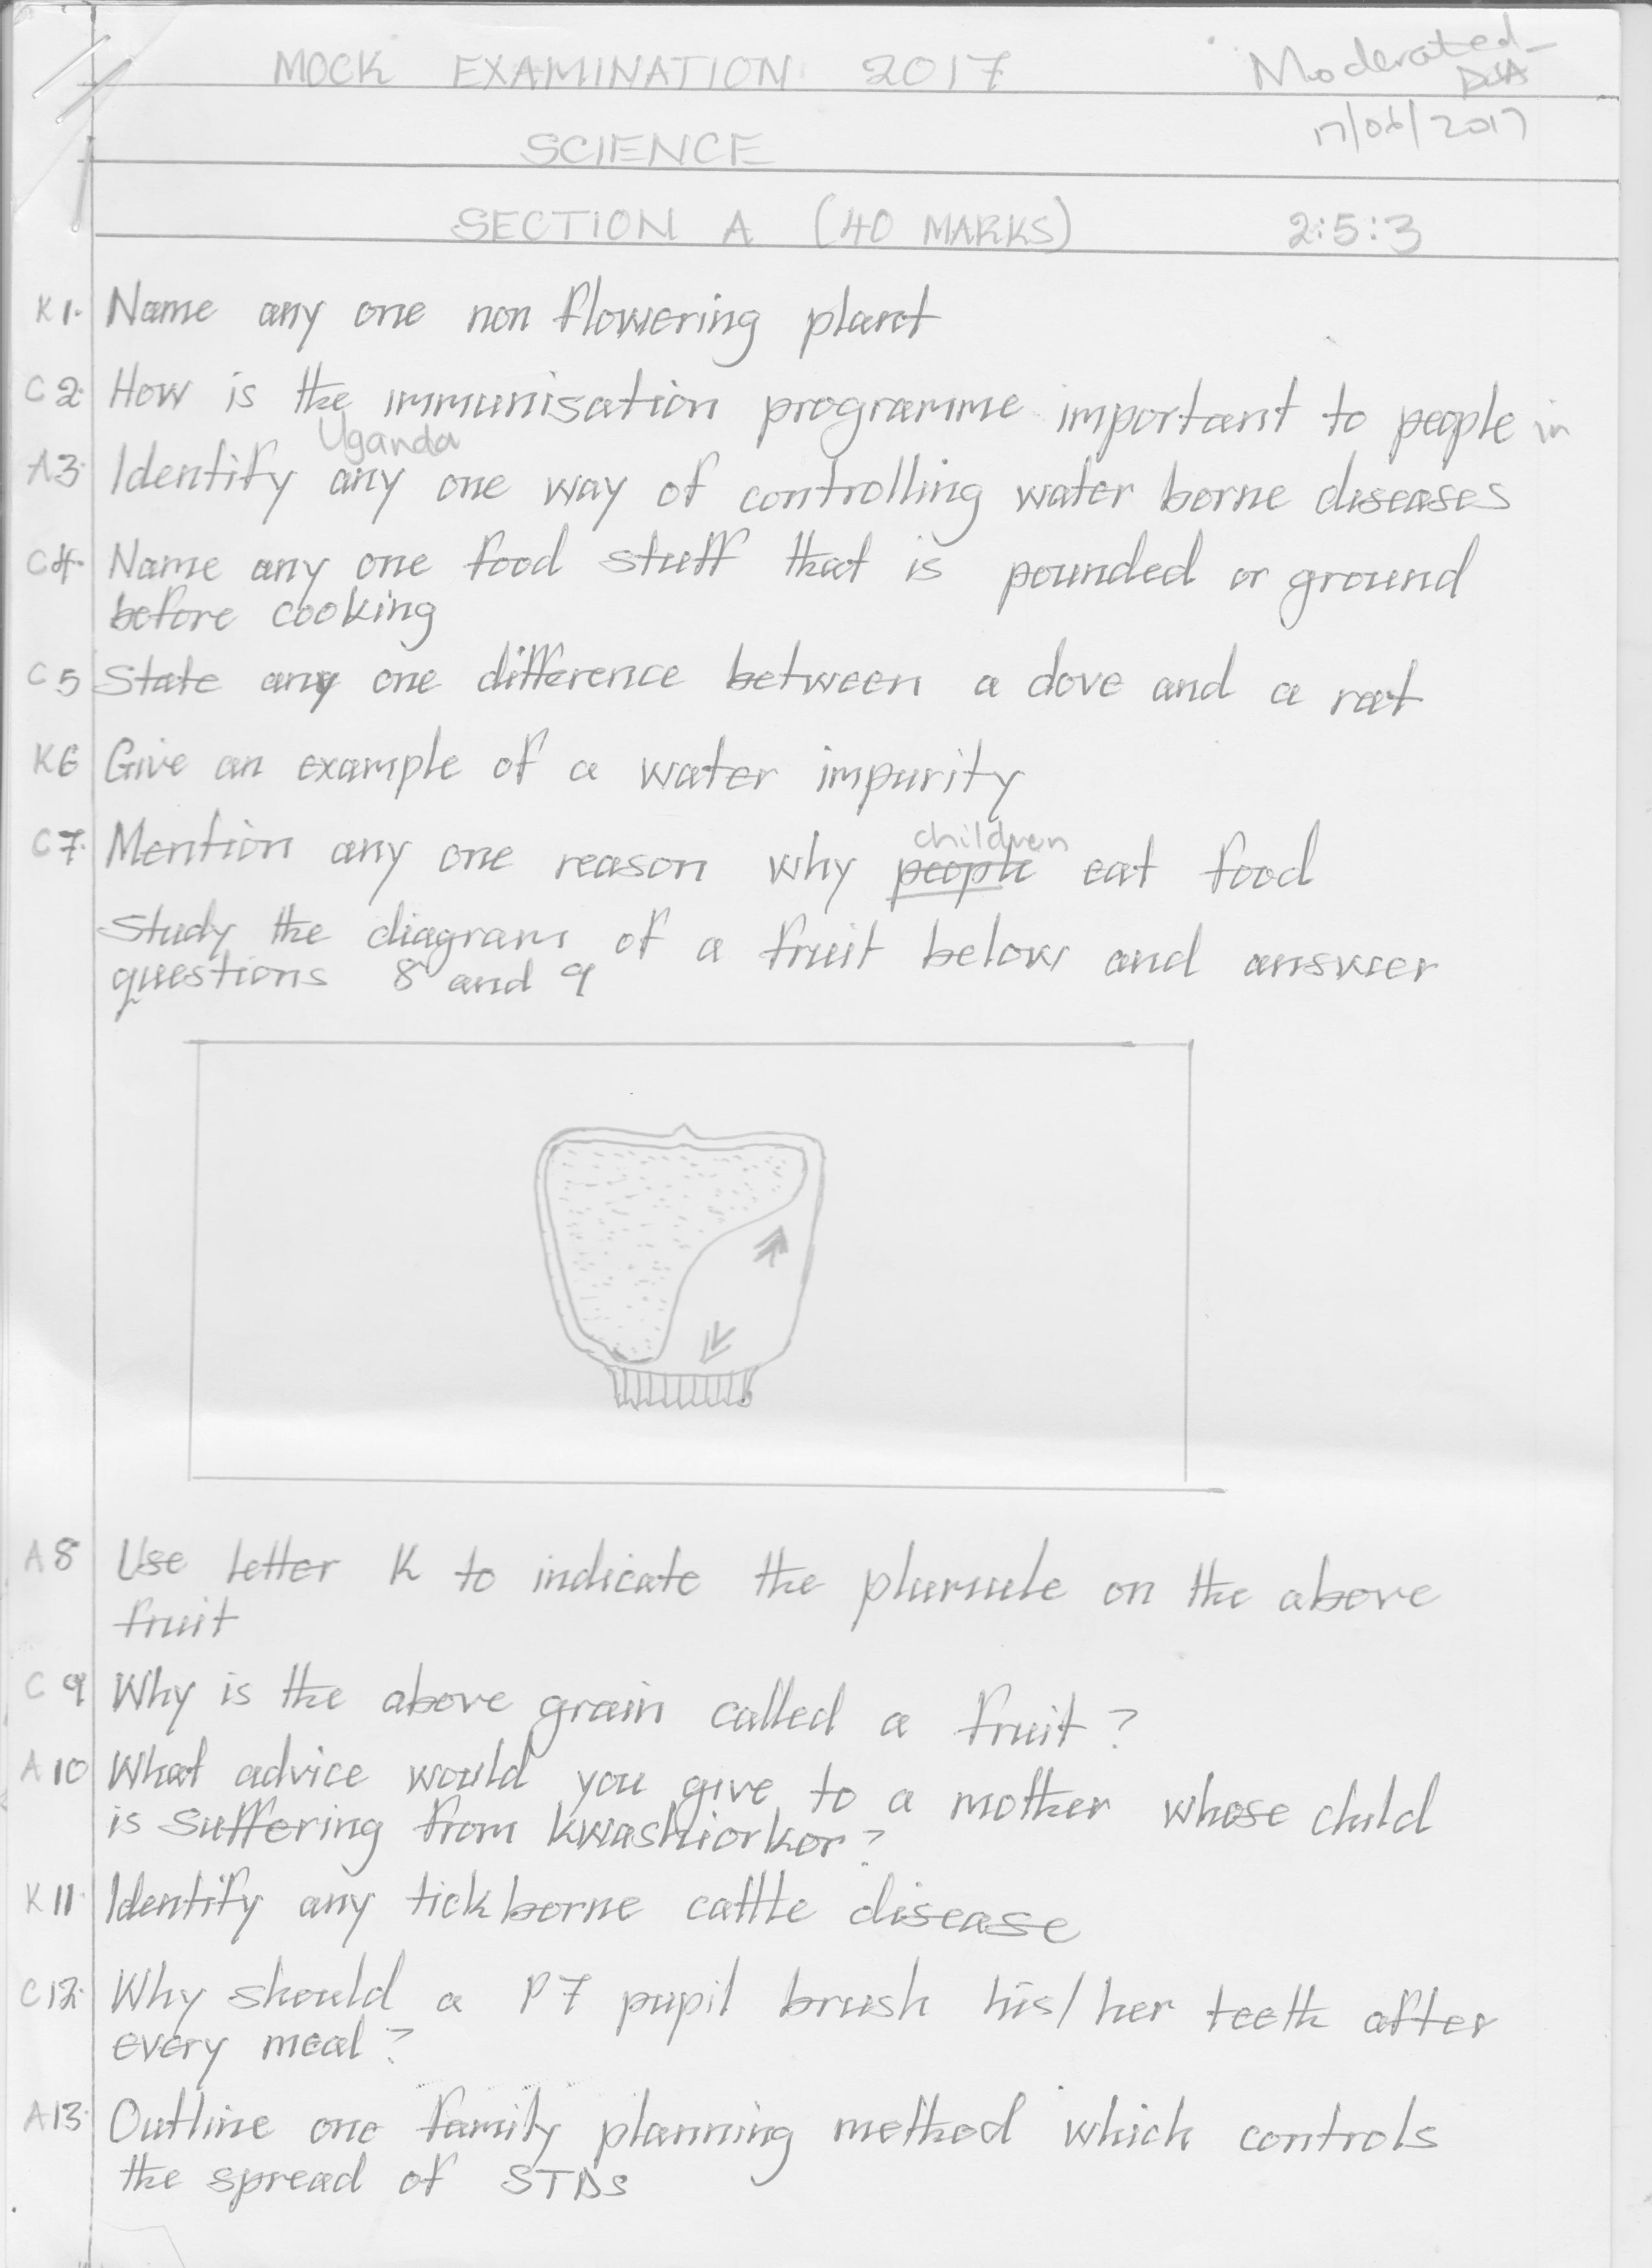 MOCK EXAMINATION 2017
Moderated
17/06/2017
SCIENCE
SECTION A (40 MARKS) 2:5:3
K 1. Name any one non flowering plant
C 2. How is the immunisation programme important to people in
Uganda
A 3. Identify any one way of controlling water borne diseases
C 4. Name any one food stuff that is pounded or ground
before cooking
C 5 State any one difference between a dove and a rat
K 6 Give an example of a water impurity
children
C 7. Mention any one reason why people eat food
Study the diagram of a fruit below and answer
questions 8 and 9
A 8 Use letter K to indicate the plumule on the above
fruit
C 9 Why is the above grain called a fruit?
A 10 What advice would you give to a mother whose child
is suffering from kwashiorkor?
K 11. Identify any tick borne cattle disease
C 12. Why should a P7 pupil brush his/her teeth after
every meal?
A 13. Outline one family planning method which controls
the spread of STDs